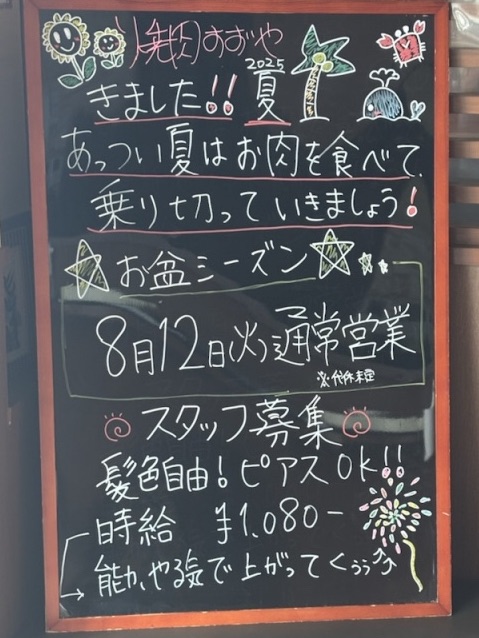 焼肉おおや
きました!! 2025夏
あっつい夏はお肉を食べて、
乗り切っていきましょう!
お盆シーズン
8月12日(火)通常営業
※代休未定
スタッフ募集
髪色自由!ピアスOK!!
時給 ¥1,080-
能力、やる気で上がってくぅぅ⤴⤴